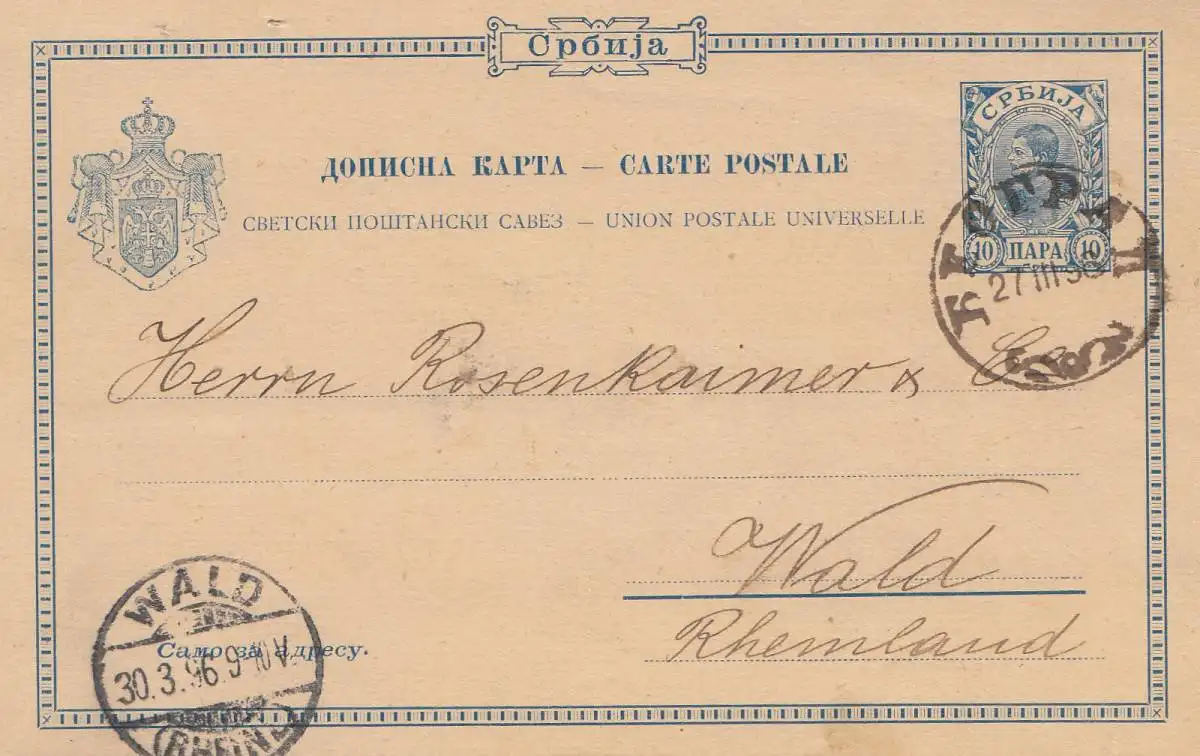 Србија
СРБИЈА
10 ПАРА 10
ДОПИСНА КАРТА — CARTE POSTALE
СВЕТСКИ ПОШТАНСКИ САВЕЗ — UNION POSTALE UNIVERSELLE
27 III 96
Herrn Rosenkaimer & Co
Wald
Rheinland
WALD
30.3.96 9-10 V.
(RHEINL)
Само за адресу.